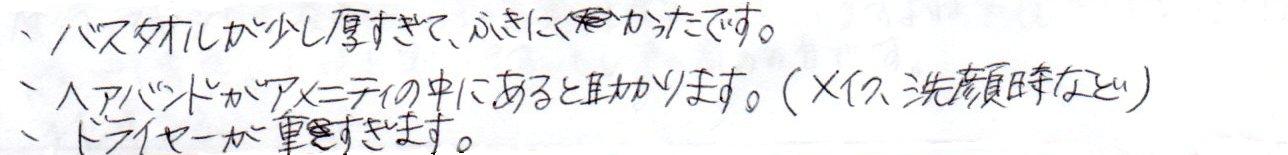 、バスタオルが少し厚すぎて、ふきにくかったです。
、ヘアバンドがアメニティの中にあると助かります。(メイク、洗顔時など)
、ドライヤーが重すぎます。